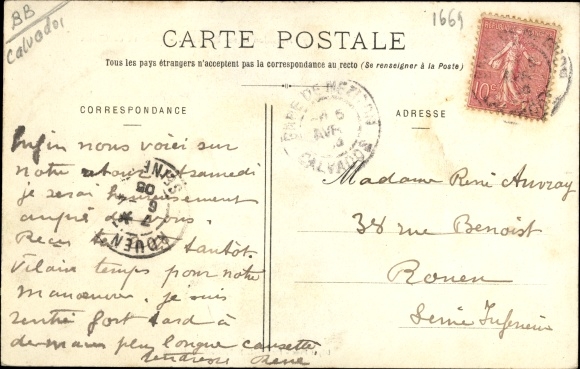 BB
Calvados
1669
CARTE POSTALE
Tous les pays étrangers n'acceptent pas la correspondance au recto (Se renseigner à la Poste)
CORRESPONDANCE
Enfin nous voici sur
notre retour samedi
je serai heureusement
auprès de vous.
Reçu tantôt.
Vilain temps pour notre
manoeuvre. je suis
rentré fort tard à
demain plus longue causette
tendresse René
ROUEN
6 06
GARE DE MEZIDON
AVR
CALVADOS
ADRESSE
10
Madame René Auvray
38 rue Benoist
Rouen
Seine Inférieure